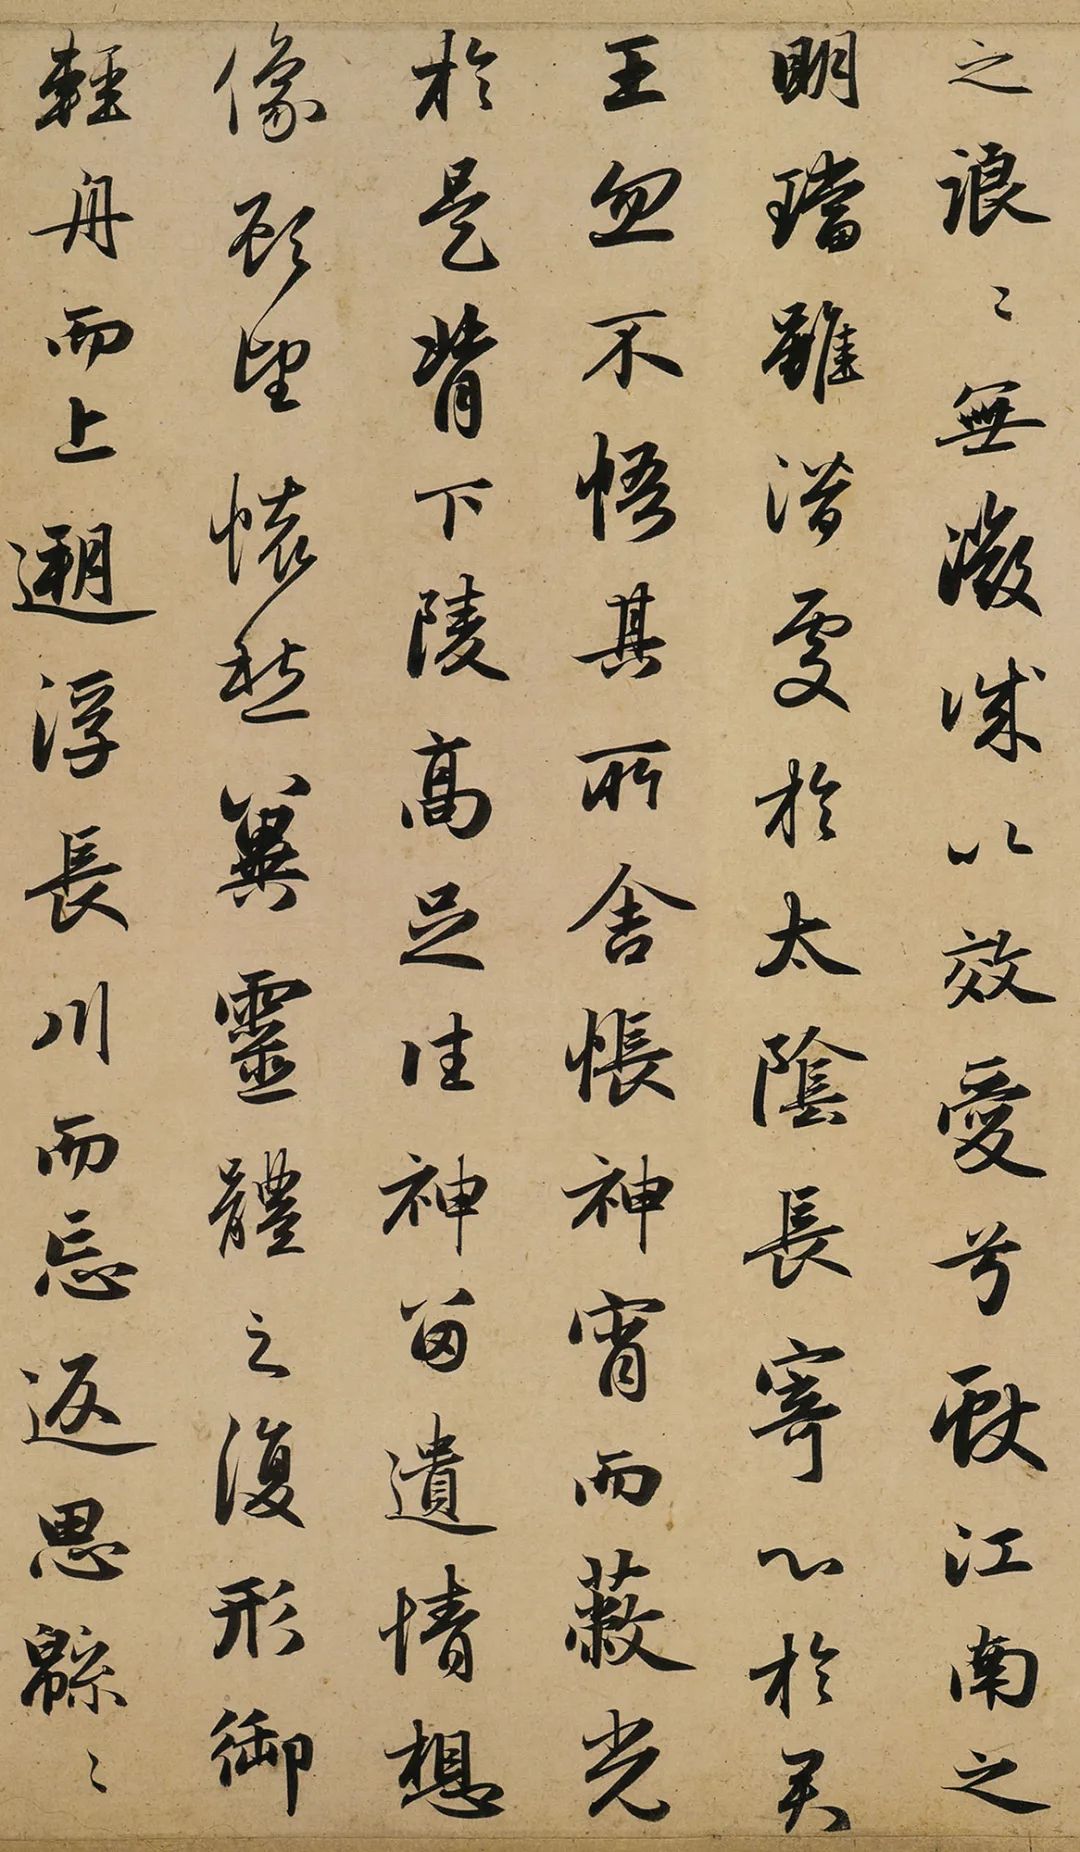 之浪〻無微誠以效愛兮獻江南之
明璫雖潛處於太陰長寄心於君
王忽不悟其所舍悵神宵而蔽光
於是背下陵高足往神留遺情想
像顧望懷愁冀靈體之復形御
輕舟而上遡浮長川而忘返思緜〻